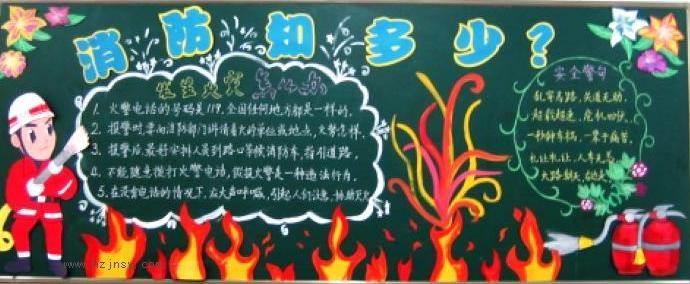 消防知多少？
发生火灾怎么办
1. 火警电话的号码是119，全国任何地方都是一样的。
2. 报警时要向消防部门讲清着火的单位或地点，火势怎样。
3. 报警后最好安排人员到路口等候消防车，指引道路。
4. 不能随意拨打火警电话，假报火警是一种违法行为。
5. 在没有电话的情况下，应大声呼喊，引起人们注意，协助灭火
安全警句
乱穿马路，关道无助，
超载超速，危机四伏，
一秒钟车祸，一辈子痛苦。
礼让礼让，人车无恙
大路朝天